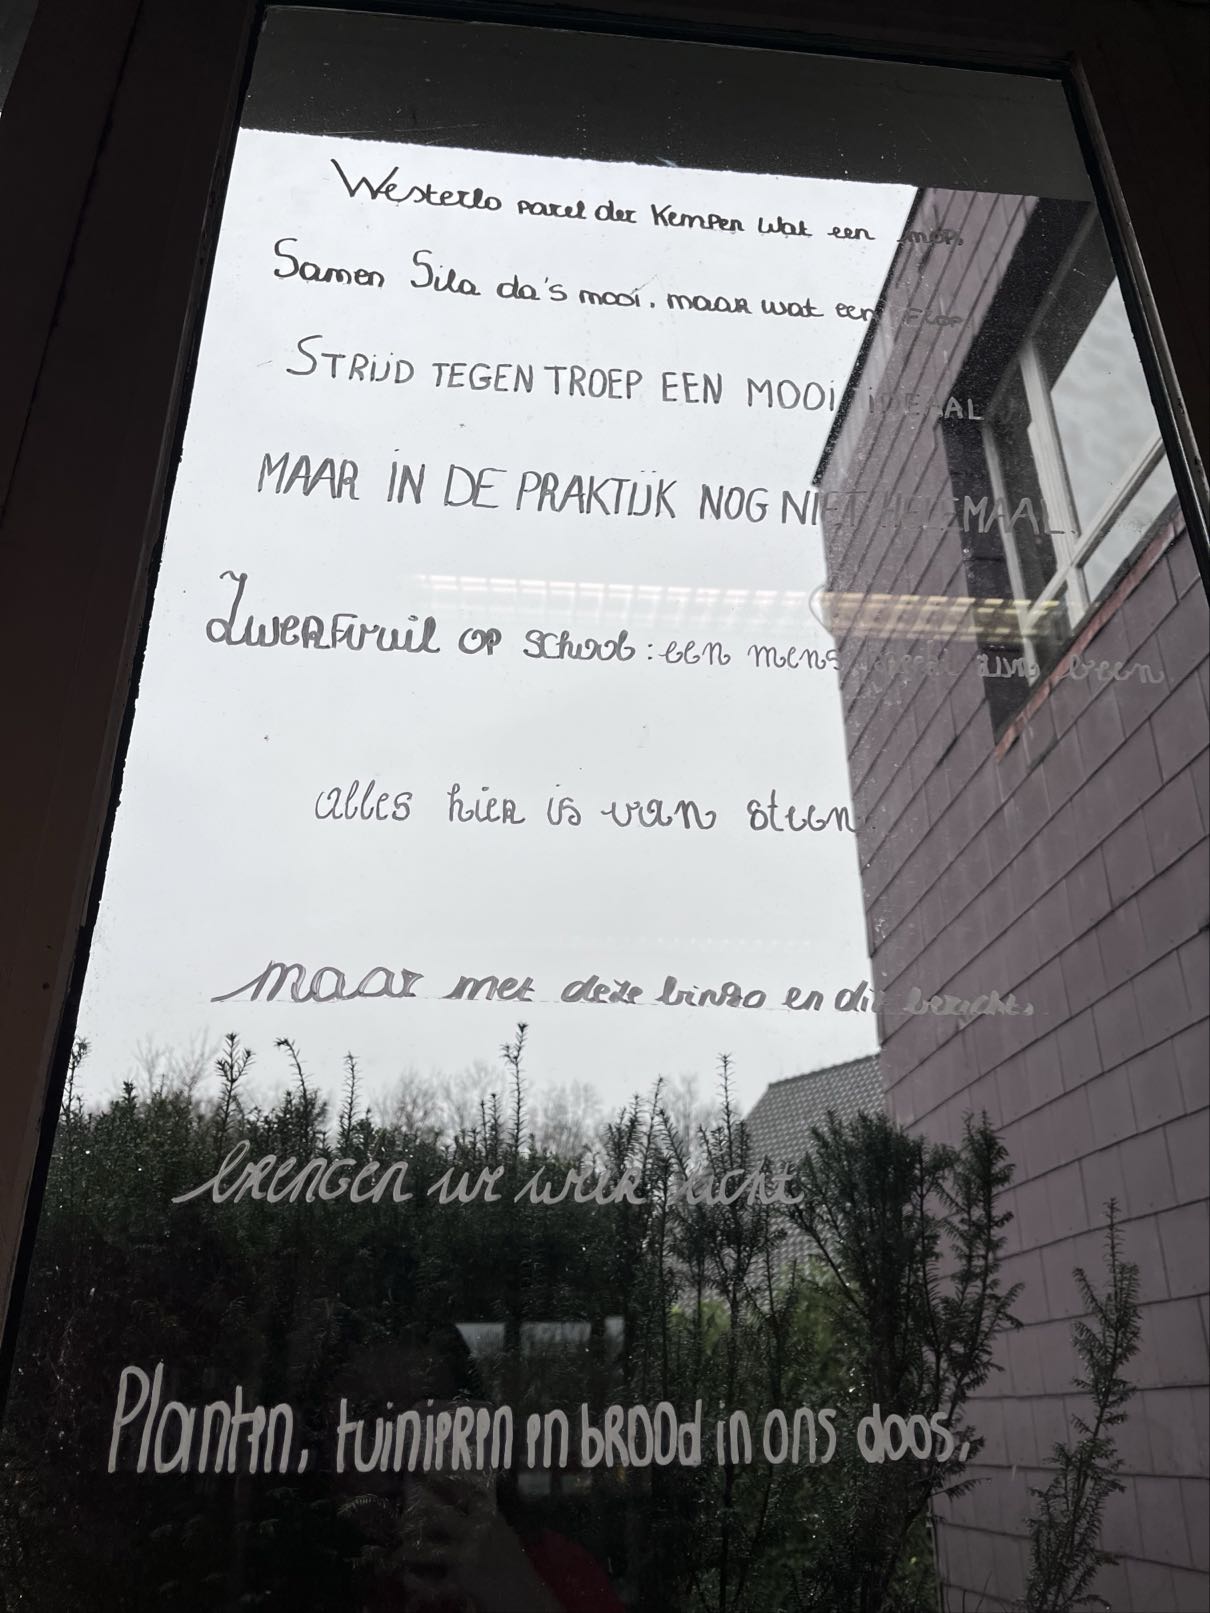 Westerlo parel der Kempen wat een mop,
Samen Sila da's mooi. maar wat een FLOP
STRIJD TEGEN TROEP EEN MOOI IDEAAL
MAAR IN DE PRAKTIJK NOG NIET HELEMAAL.
Zwerfvuil op school: een mens zijn been
alles hier is van steen
maar met deze bingo en dit bericht,
brengen we weer licht
Planten, tuinieren en brood in ons doos,